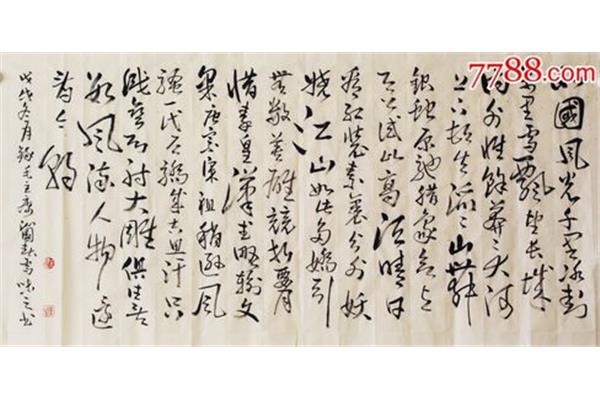 7788.com
北國風光千里冰封
萬里雪飄望長城
內外惟餘莽莽大河
上下頓失滔滔山舞
銀蛇原馳腊象欲与
天公試比高須晴日
看紅裝素裹分外妖
嬈江山如此多嬌引
無數英雄競折腰
惜秦皇漢武略輸文
采唐宗宋祖稍遜風
騷一代天驕成吉思汗只
識彎弓射大雕俱往矣
數風流人物還
看今朝
戊戌冬月錄毛主席